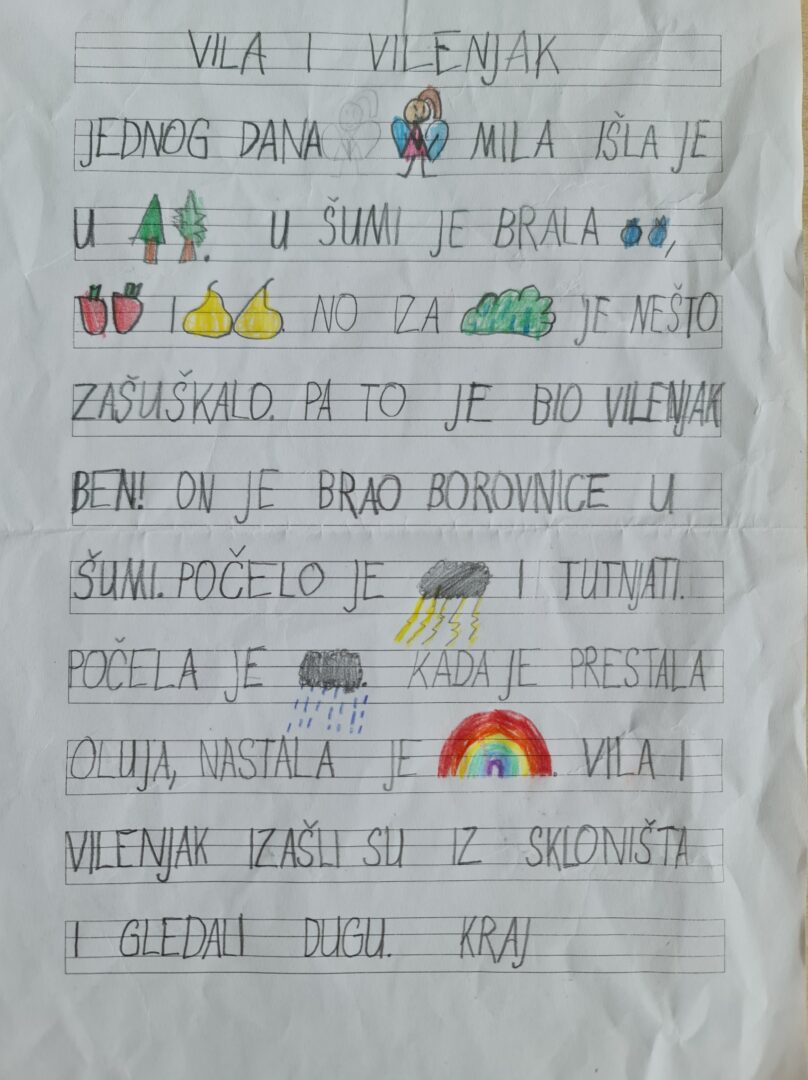 VILA I VILENJAK
JEDNOG DANA MILA IŠLA JE
U . U ŠUMI JE BRALA ,
I . NO IZA JE NEŠTO
ZAŠUŠKALO. PA TO JE BIO VILENJAK
BEN! ON JE BRAO BOROVNICE U
ŠUMI. POČELO JE I TUTNJATI.
POČELA JE . KADA JE PRESTALA
OLUJA, NASTALA JE . VILA I
VILENJAK IZAŠLI SU IZ SKLONIŠTA
I GLEDALI DUGU. KRAJ